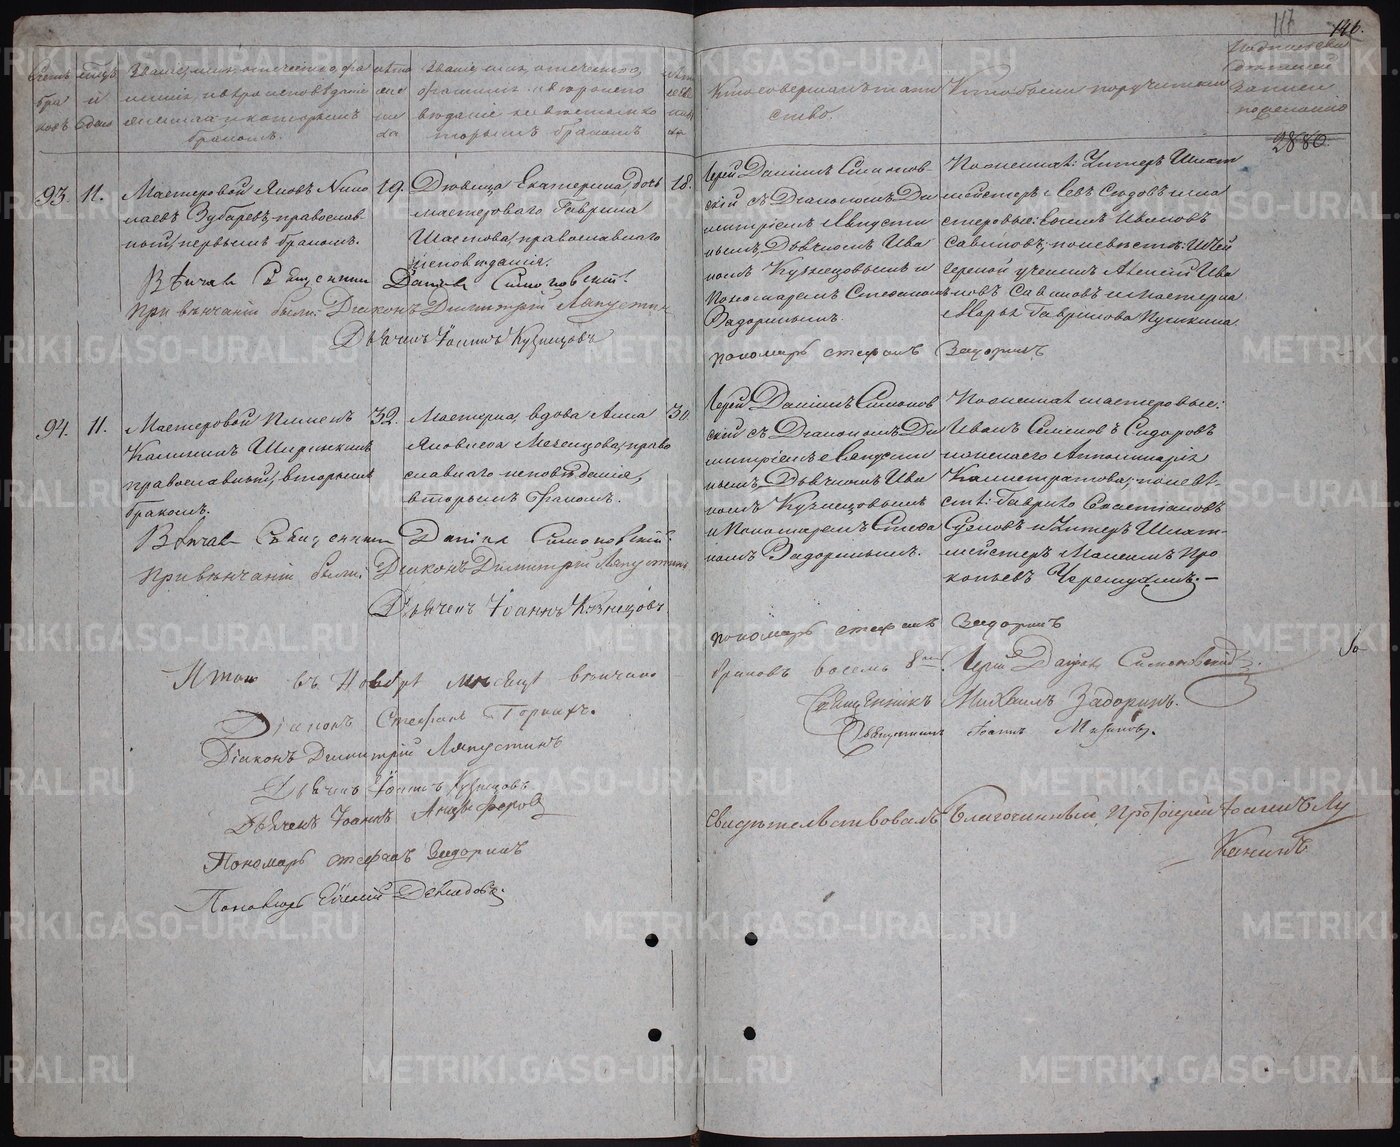 117
146.
Счетъ браковъ
Мѣсяцъ и день
Званіе, имя, отечество, фамилія, и вѣроисповѣданіе жениха и которымъ бракомъ.
лѣта жениха
Званіе, имя, отечество, фамилія и вѣроисповѣданіе невѣсты и которымъ бракомъ
лѣта невѣсты
Кто совершалъ таинство.
Кто были поручители
Подпись свидѣтелей записи по желанію
2880.
93. 11.
Мастеровой Яковъ Нико
лаевъ Зубаревъ, православ
ный, первымъ бракомъ.
19.
Дѣвица Екатерина, дочь
мастероваго Гаврила
православнаго
исповѣданія.
18.
Іерей Даніилъ Симонов-
скій съ Діакономъ Ди
митріемъ Ляпусти
нымъ, Дьячкомъ Ива
номъ Кузнецовымъ и
Пономаремъ Стефаномъ
Задоринымъ.
По женихѣ: Унтеръ Шихт
мейстеръ Левъ и ма
стеровые:
Савиновъ; по невѣстѣ:
Савиновъ и мастерка
Марья Гаврилова Пушкина.
Вѣнчалъ Священникъ Даніилъ Симоновскій.
При вѣнчаніи были: Діаконъ Димитрій Ляпустин
Дьячекъ Іоаннъ Кузнецовъ
пономарь стефанъ Задоринъ
94. 11.
Мастеровой Пименъ
Калининъ Ширинкинъ
православный, вторымъ
бракомъ.
32.
Мастерка, вдова Анна
Яковлева Мезенцова, право
славнаго исповѣданія,
вторымъ бракомъ.
30
Іерей Даніилъ Симонов
скій съ Діакономъ Ди
митріемъ Ляпусти
нымъ, Дьячкомъ Ива
номъ Кузнецовымъ
и Пономаремъ Стефа
номъ Задоринымъ.
По женихѣ мастеровые:
Иванъ Семеновъ Сидоровъ
Калистратова; по невѣ-
стѣ: Гаврило Севастіановъ
Сусловъ и Унтеръ Шихт-
мейстеръ Максимъ Про
копьевъ
Вѣнчалъ Священникъ Даніилъ Симоновскій
При вѣнчаніи были: Діаконъ Димитрій Ляпустинъ
Дьячекъ Іоаннъ Кузнецовъ
пономарь стефанъ Задоринъ
Итого въ Ноябрѣ мѣсяцѣ вѣнчано
браковъ восемь 8. Іерей Даніилъ Симоновскій.
Священникъ Михаилъ Задоринъ.
Священникъ Іоаннъ
Діаконъ Стефанъ
Діаконъ Димитрій Ляпустинъ
Дьячекъ Іоаннъ Кузнецовъ
Дьячекъ Іоаннъ Анцыферовъ
Пономарь стефанъ Задоринъ
Пономарь Евгеній Демидовъ.
Свидѣтельствовалъ Благочинный, Протоіерей Іоаннъ Лу
канинъ
METRIKI.GASO-URAL.RU